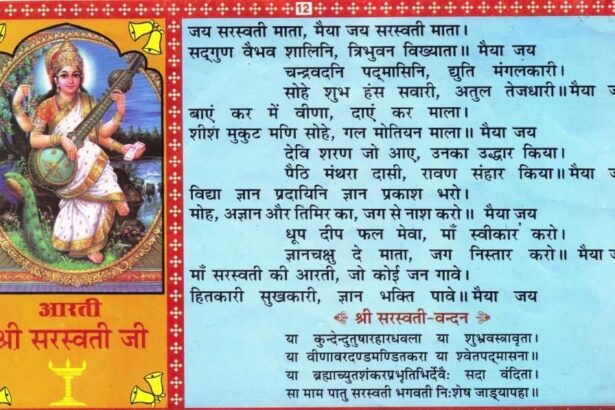 12
जय सरस्वती माता, मैया जय सरस्वती माता।
सद्‌गुण वैभव शालिनि, त्रिभुवन विख्याता॥ मैया जय
चन्द्रवदनि पद्‌मासिनि, द्युति मंगलकारी।
सोहे शुभ हंस सवारी, अतुल तेजधारी॥ मैया ज
बाएं कर में वीणा, दाएं कर माला।
शीश मुकुट मणि सोहे, गल मोतियन माला॥ मैया जय
देवि शरण जो आए, उनका उद्धार किया।
पैठि मंथरा दासी, रावण संहार किया॥ मैया ज
विद्या ज्ञान प्रदायिनि ज्ञान प्रकाश भरो।
मोह, अज्ञान और तिमिर का, जग से नाश करो॥ मैया जय
धूप दीप फल मेवा, माँ स्वीकार करो।
ज्ञानचक्षु दे माता, जग निस्तार करो॥ मैया ज
माँ सरस्वती की आरती, जो कोई जन गावे।
हितकारी सुखकारी, ज्ञान भक्ति पावे॥ मैया जय
श्री सरस्वती-वन्दन
या कुन्देन्दुतुषारहारधवला या शुभ्रवस्त्रावृता।
या वीणावरदण्डमण्डितकरा या श्वेतपद्मासना॥
या ब्रह्माच्युतशंकरप्रभृतिभिर्देवैः सदा वन्दिता।
सा माम पातु सरस्वती भगवती निःशेष जाड्यापहा॥
आरती
श्री सरस्वती जी